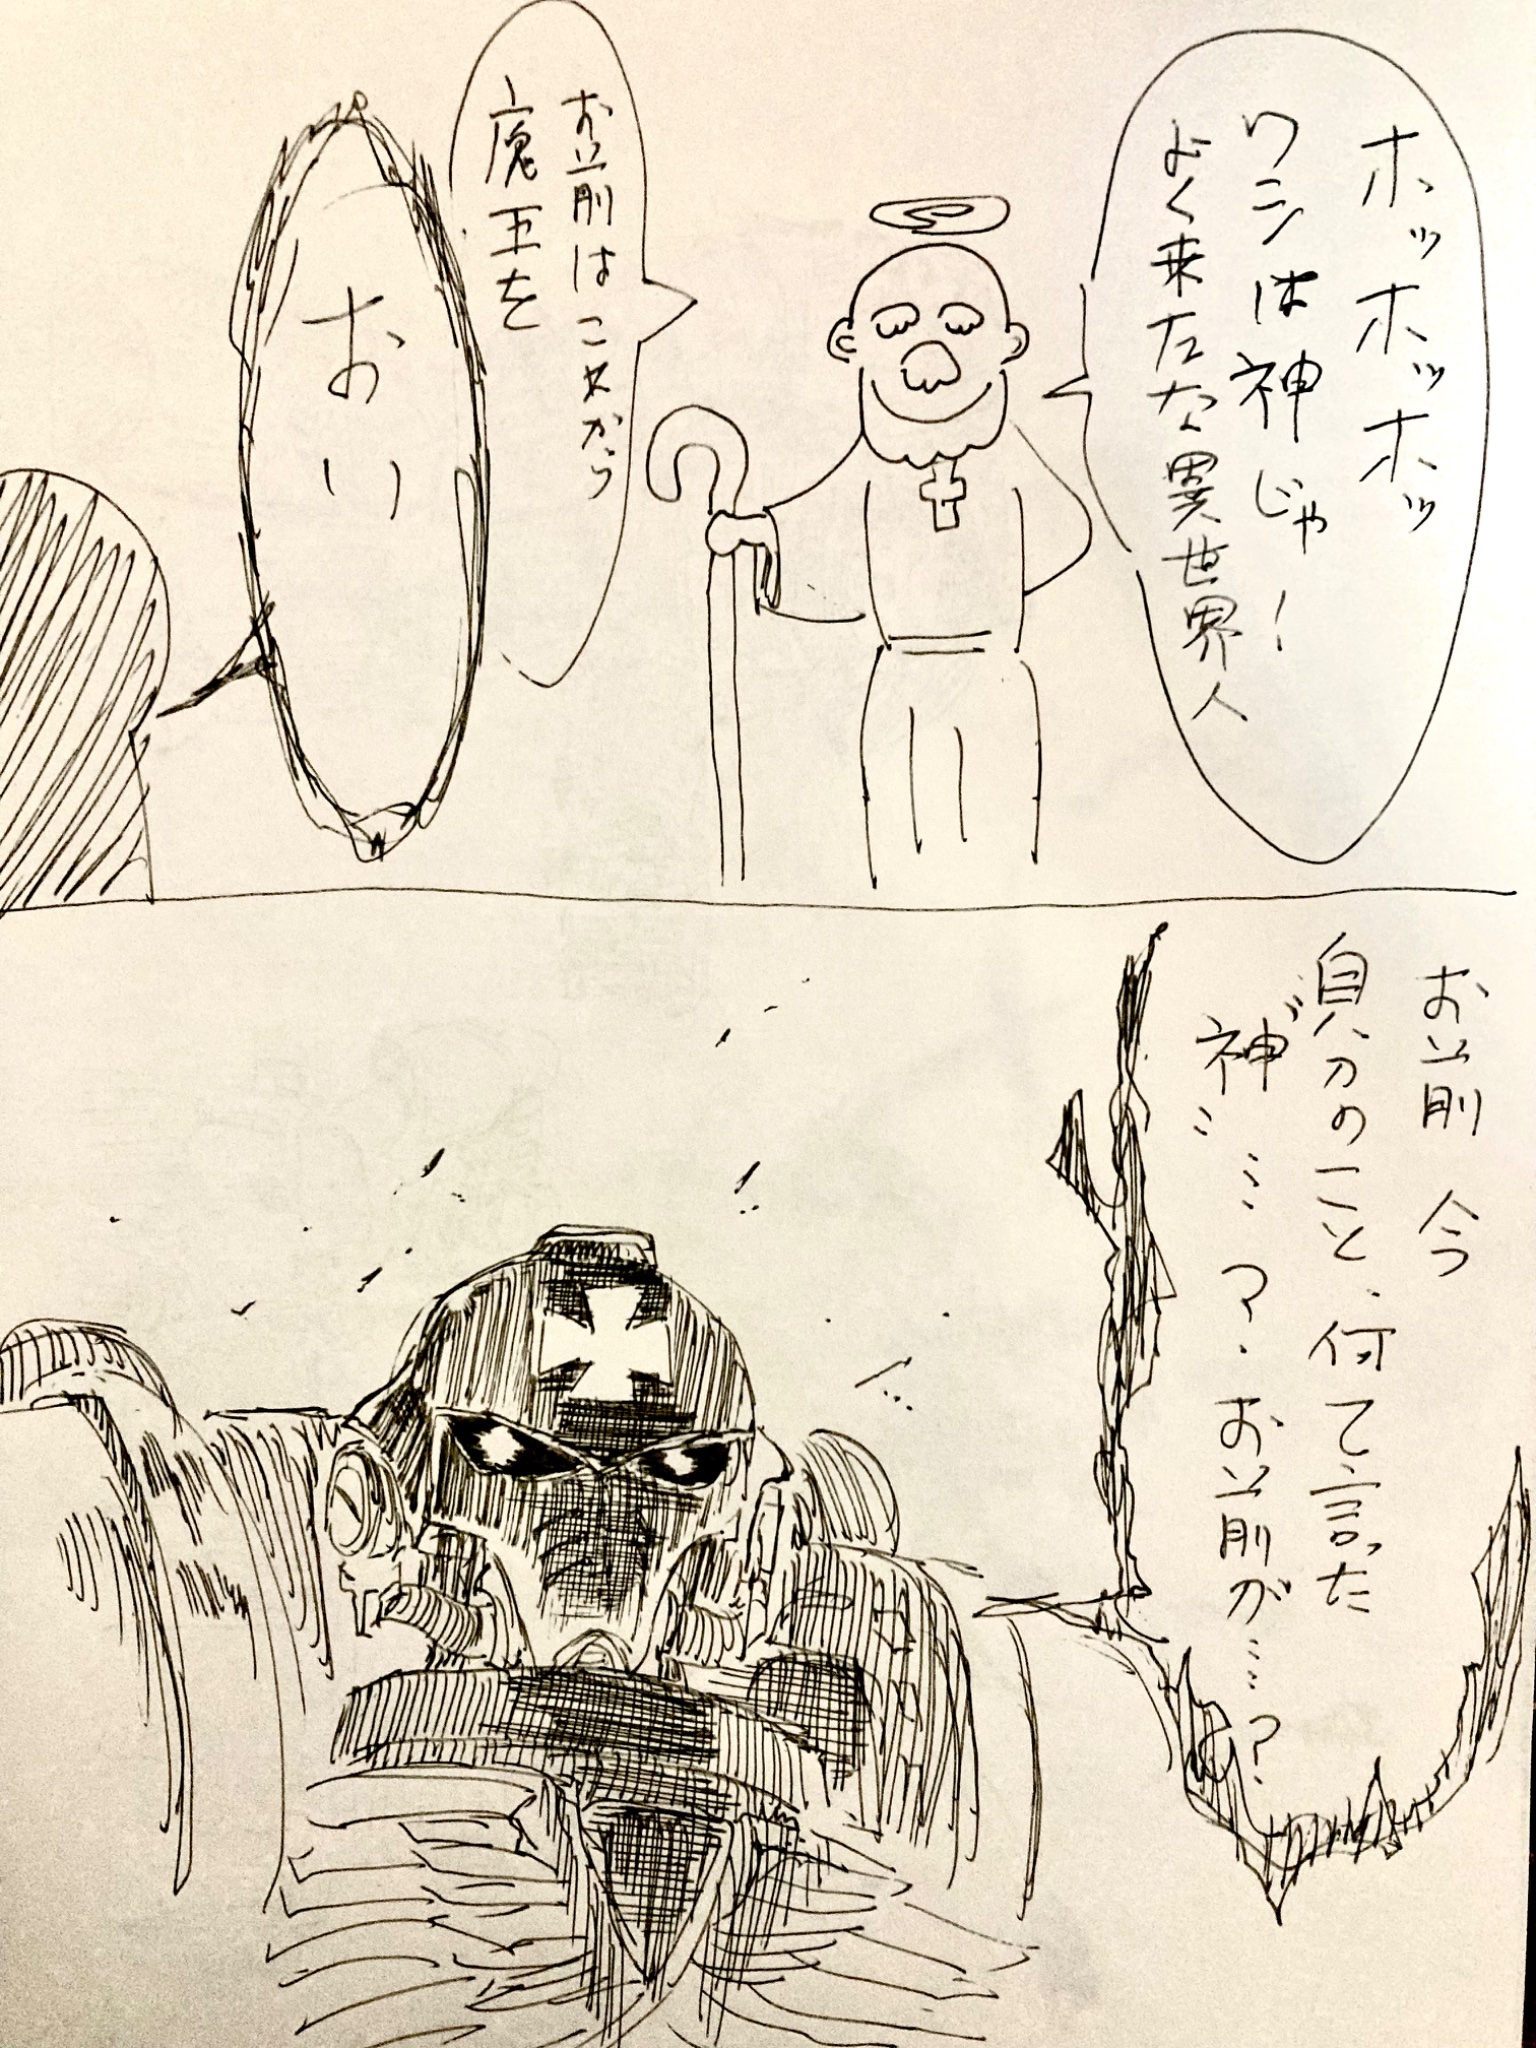 ホッホッホッ
ワシは神じゃ！
よく来たな異世界人
お前はこれから
魔王を
おい
お前 今
自分のこと、何て言った
神……？お前が……？